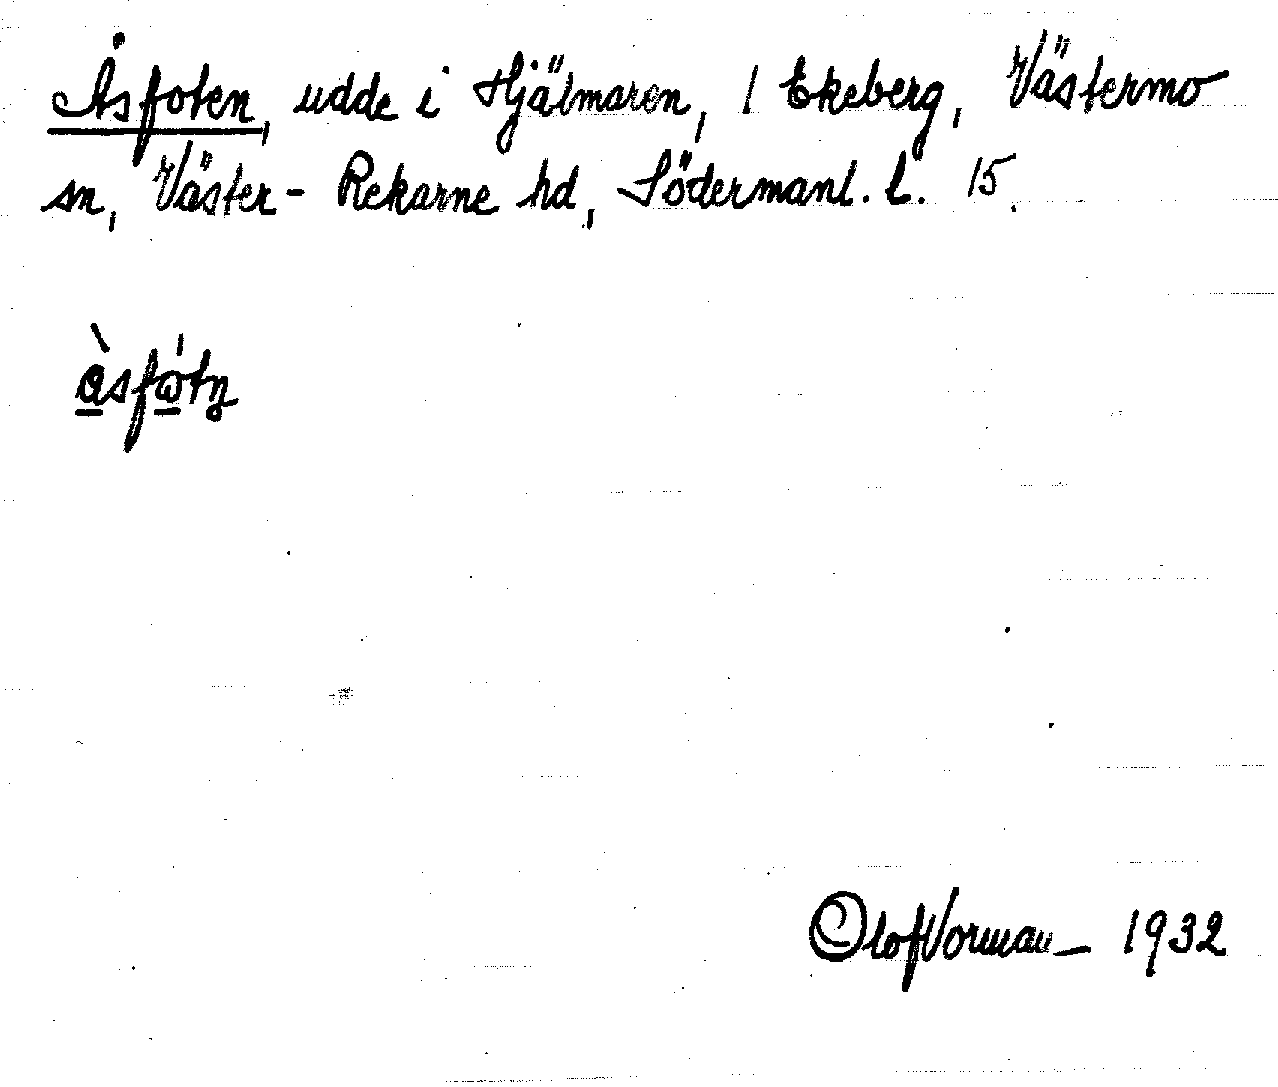 Åsfoten, udde i Hjälmaren, 1 Ekeberg, Västermo
sn, Väster-Rekarne hd, Södermanl. l. 15.
Olof Vorman 1932